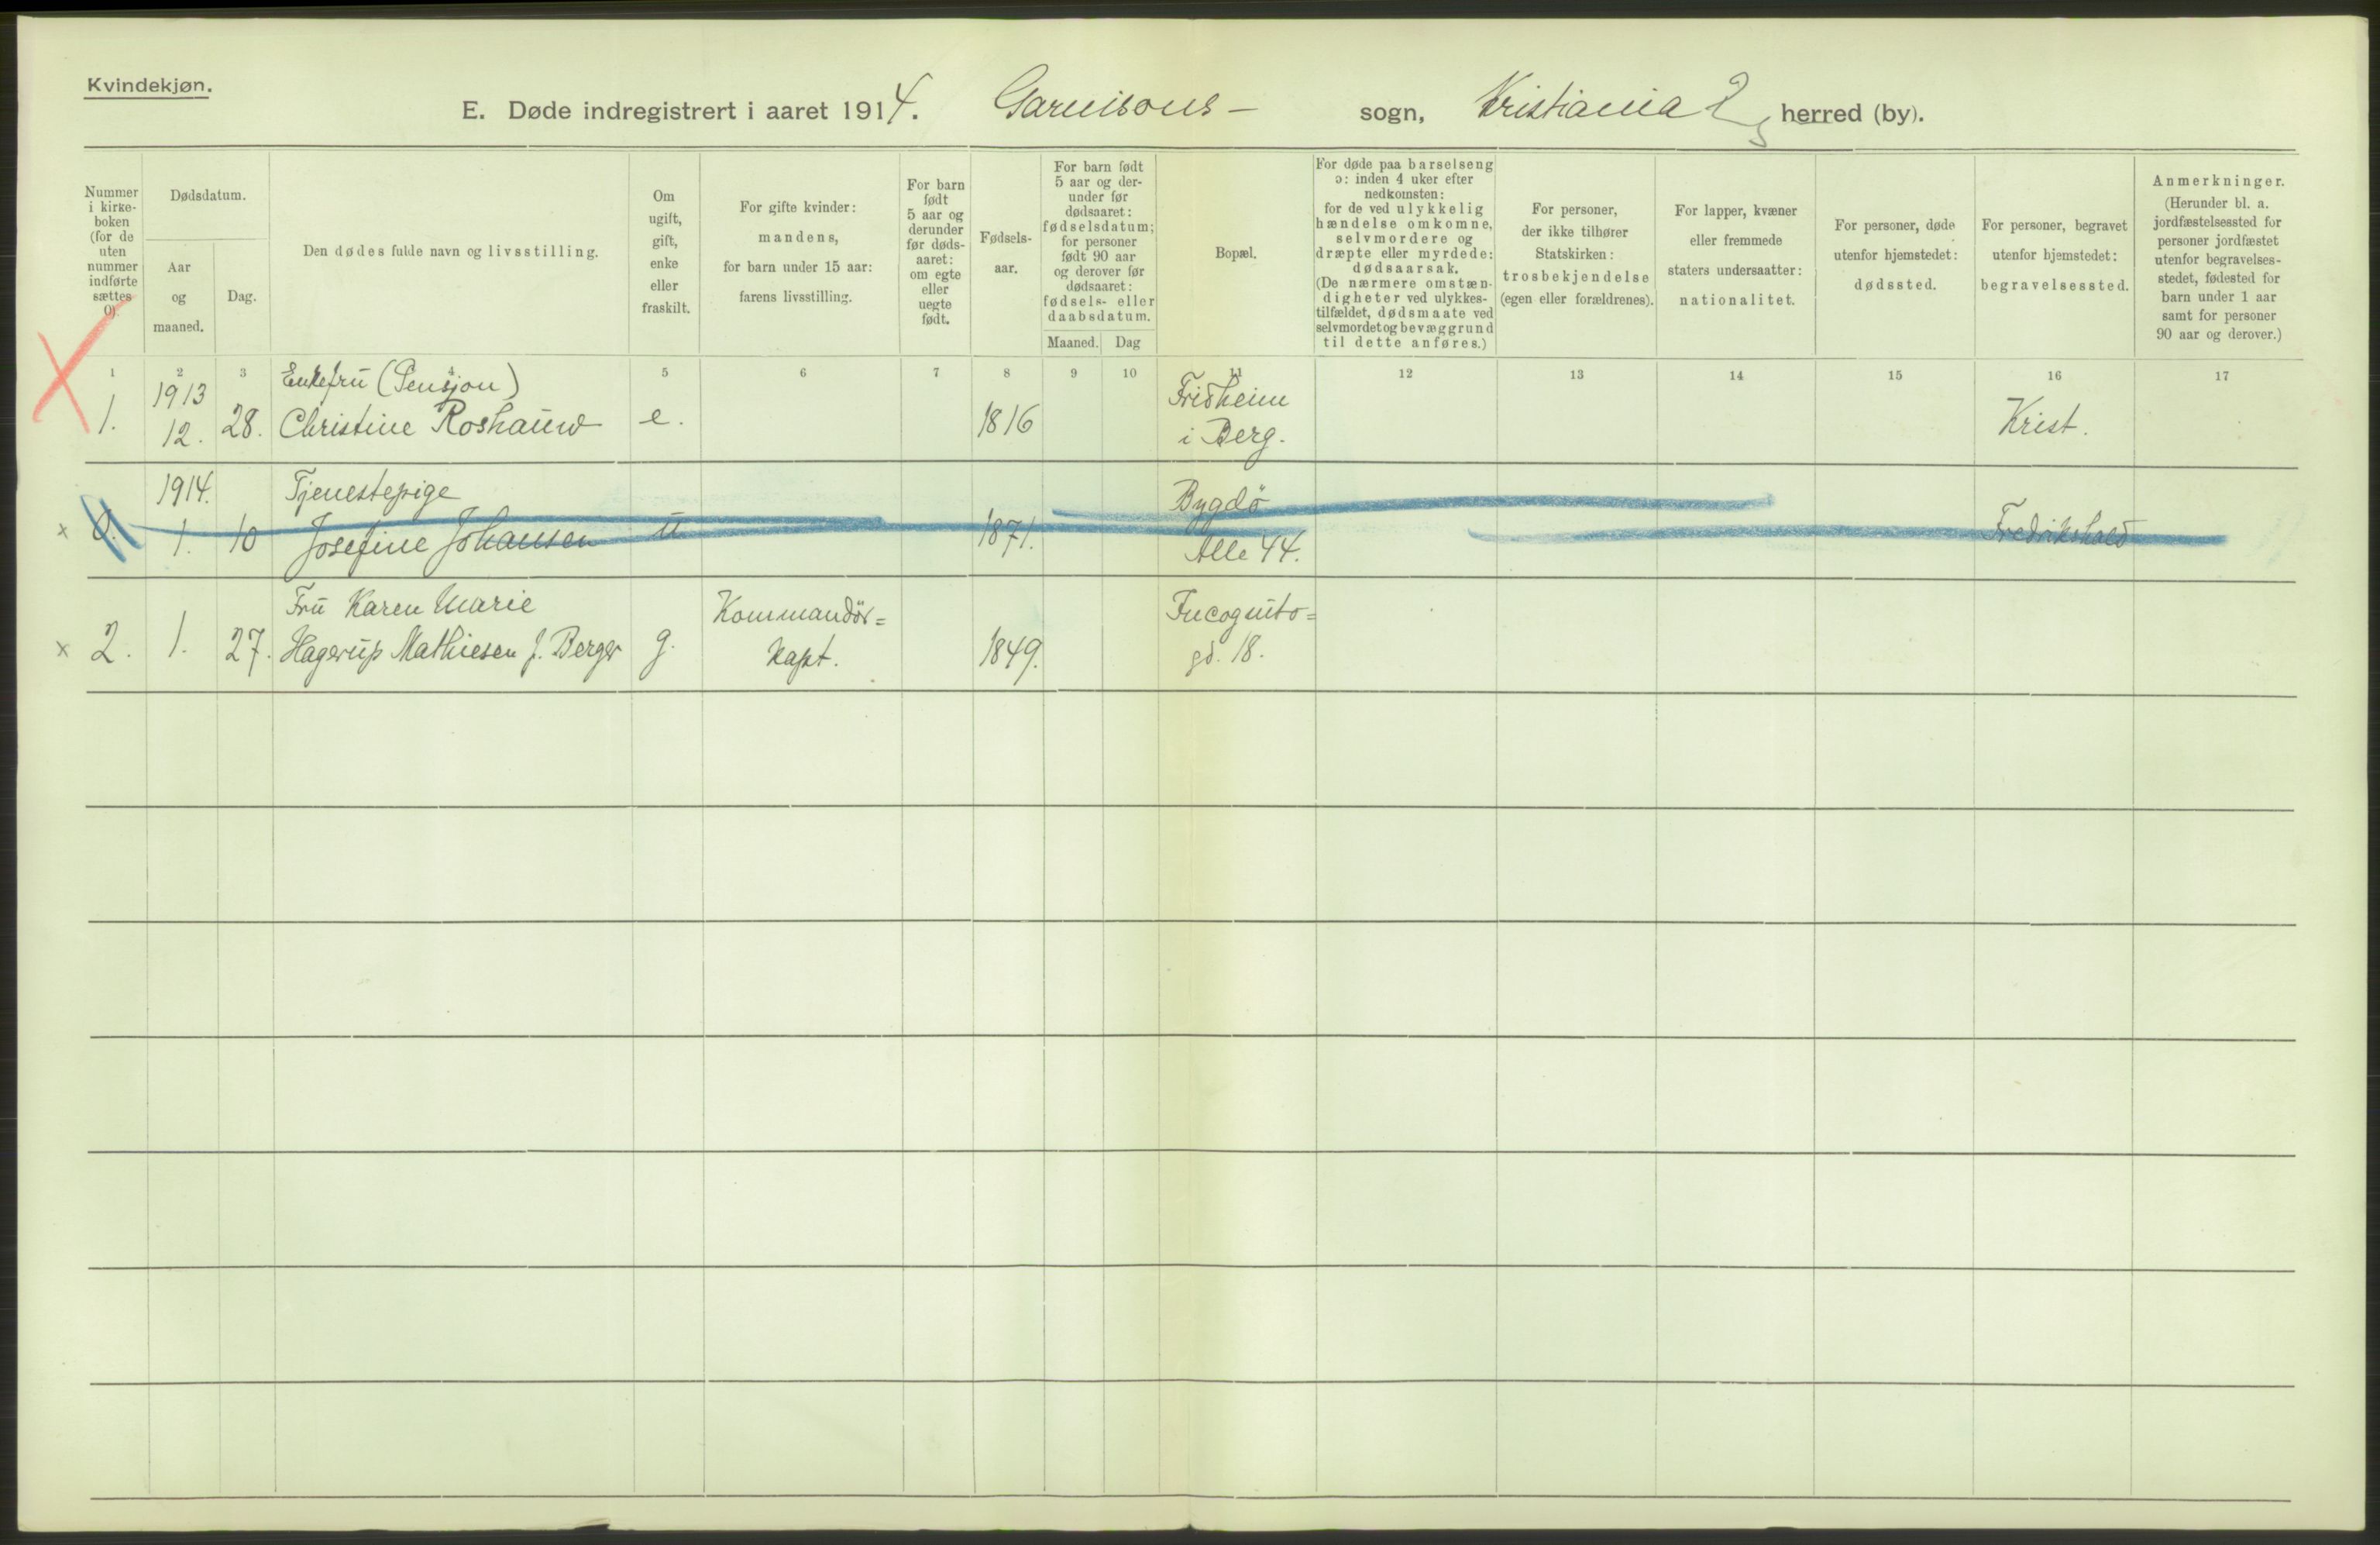 Kvindekjøn.
E. Døde indregistrert i aaret 1914. Garnisons- sogn, Kristiania herred (by).
Nummer i kirkeboken (for de uten nummer indførte sættes 0).
Dødsdatum.
Aar og maaned.
Dag.
Den dødes fulde navn og livsstilling.
Om ugift, gift, enke eller fraskilt.
For gifte kvinder: mandens, for barn under 15 aar: farens livsstilling.
For barn født 5 aar og derunder før dødsaaret: om egte eller uegte født.
Fødselsaar.
For barn født 5 aar og derunder før dødsaaret: fødselsdatum; for personer født 90 aar og derover før dødsaaret: fødsels- eller daabsdatum.
Maaned. Dag
Bopæl.
For døde paa barselseng ɔ: inden 4 uker efter nedkomsten: for de ved ulykkelig hændelse omkomne, selvmordere og dræpte eller myrdede: dødsaarsak. (De nærmere omstændigheter ved ulykkestilfældet, dødsmaate ved selvmordet og bevæggrund til dette anføres.)
For personer, der ikke tilhører Statskirken: trosbekjendelse (egen eller forældrenes).
For lapper, kvæner eller fremmede staters undersaatter: nationalitet.
For personer, døde utenfor hjemstedet: dødssted.
For personer, begravet utenfor hjemstedet: begravelsessted.
Anmerkninger. (Herunder bl. a. jordfæstelsessted for personer jordfæstet utenfor begravelsesstedet, fødested for barn under 1 aar samt for personer 90 aar og derover.)
1 2 3 4 5 6 7 8 9 10 11 12 13 14 15 16 17
1913 Enkefru (Pensjon) Fridheim
1. 12. 28. Christine Roshauw e. 1816 i Berg. Krist.
1914. Tjenestepige Bygdö
x 0. 1. 10 Josefine Johansen u 1871. Alle 44. Fredrikshald
Fru Karen Marie Kommandör= Incognito=
x 2. 1. 27. Hagerup Mathiesen f. Berger g. Kapt. 1849. gd. 18.